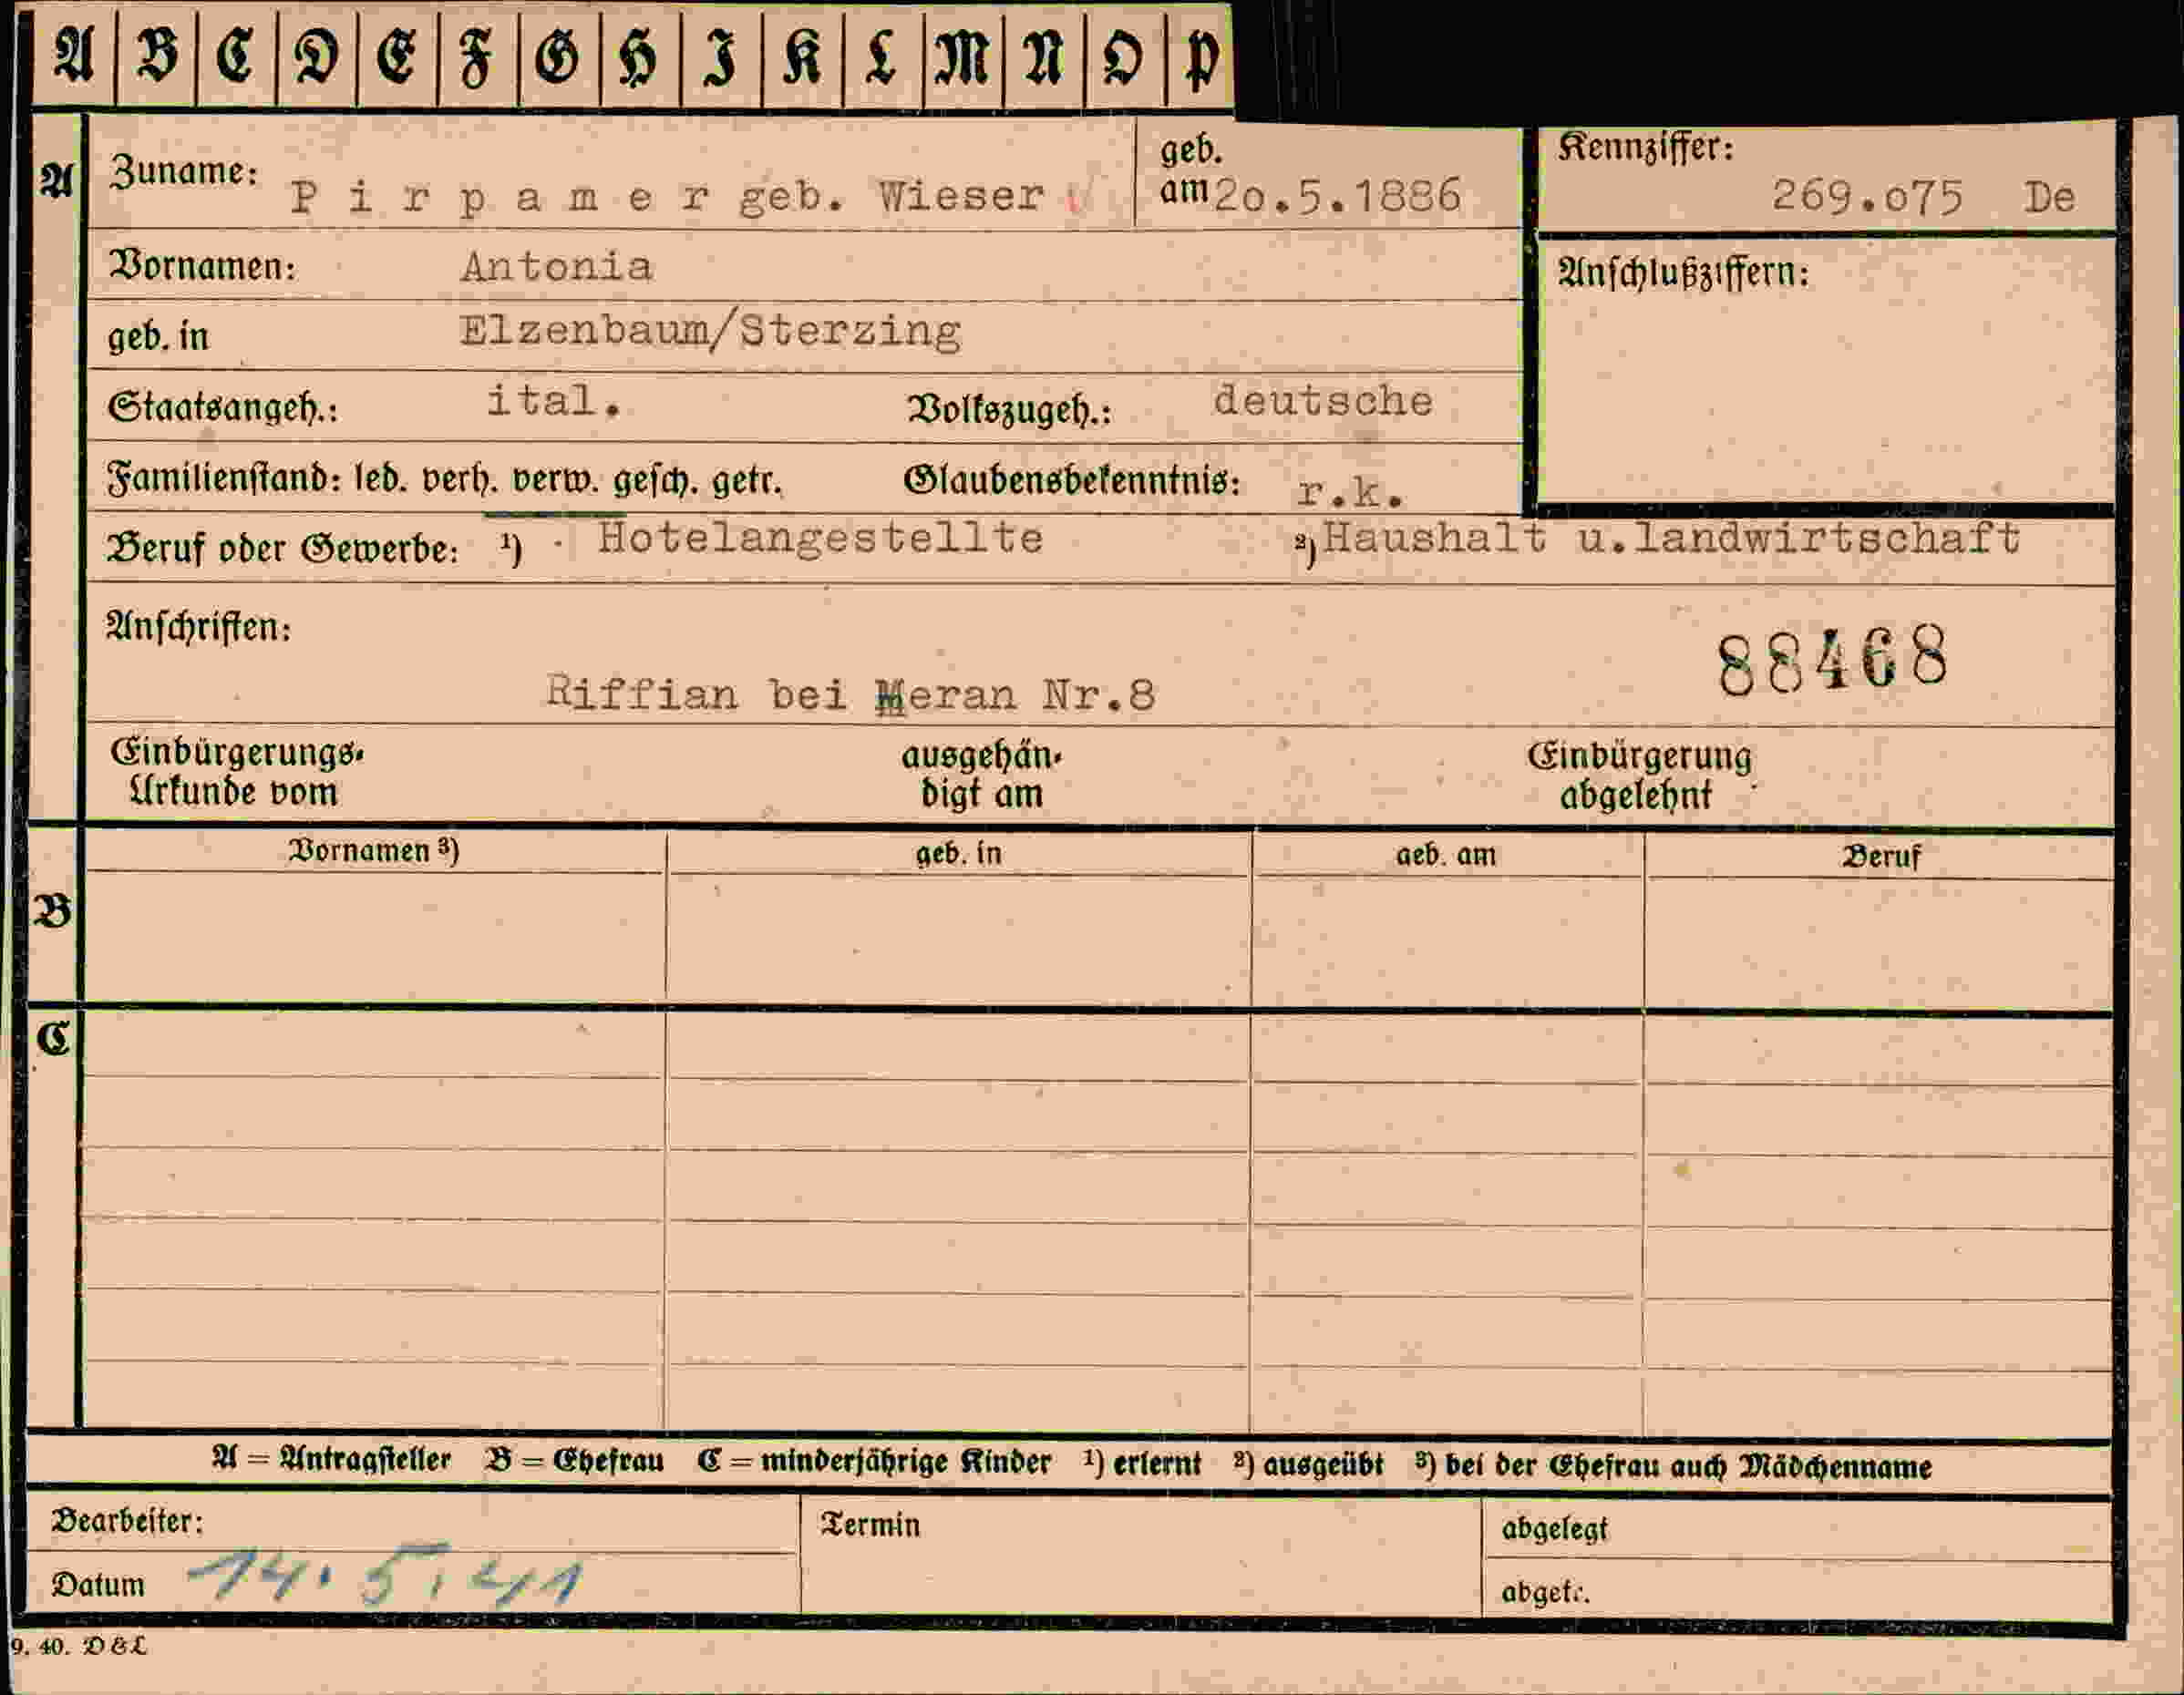 A B C D E F G H I K L M N O P
A Zuname: Pirpamer geb. Wieser geb. am 2o.5.1886 Kennziffer: 269.o75 De
Vornamen: Antonia Anschlußziffern:
geb. in Elzenbaum/Sterzing
Staatsangeh.: ital. Volkszugeh.: deutsche
Familienstand: led. verh. verw. gesch. getr. Glaubensbekenntnis: r.k.
Beruf oder Gewerbe: ¹) Hotelangestellte ²) Haushalt u.landwirtschaft
Anschriften:
88468
Riffian bei Meran Nr.8
Einbürgerungs- ausgehän- Einbürgerung
Urkunde vom digt am abgelehnt
Vornamen ³) geb. in geb. am Beruf
B
C
A = Antragsteller B = Ehefrau C = minderjährige Kinder ¹) erlernt ²) ausgeübt ³) bei der Ehefrau auch Mädchenname
Bearbeiter: Termin abgelegt
Datum 14.5.41 abget.
9. 40. D & L